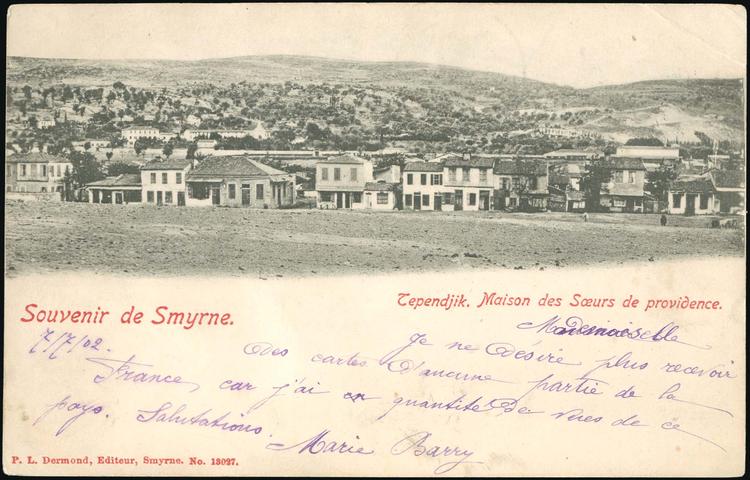 Souvenir de Smyrne.
Tependjik. Maison des Sœurs de providence.
Mademoiselle
7/7/02.
Je ne Désire plus recevoir
Des cartes D'aucune partie de la
France, car j'ai en quantité De vues de ce
pays. Salutations.
Marie Barry
P. L. Dermond, Editeur, Smyrne. No. 13027.